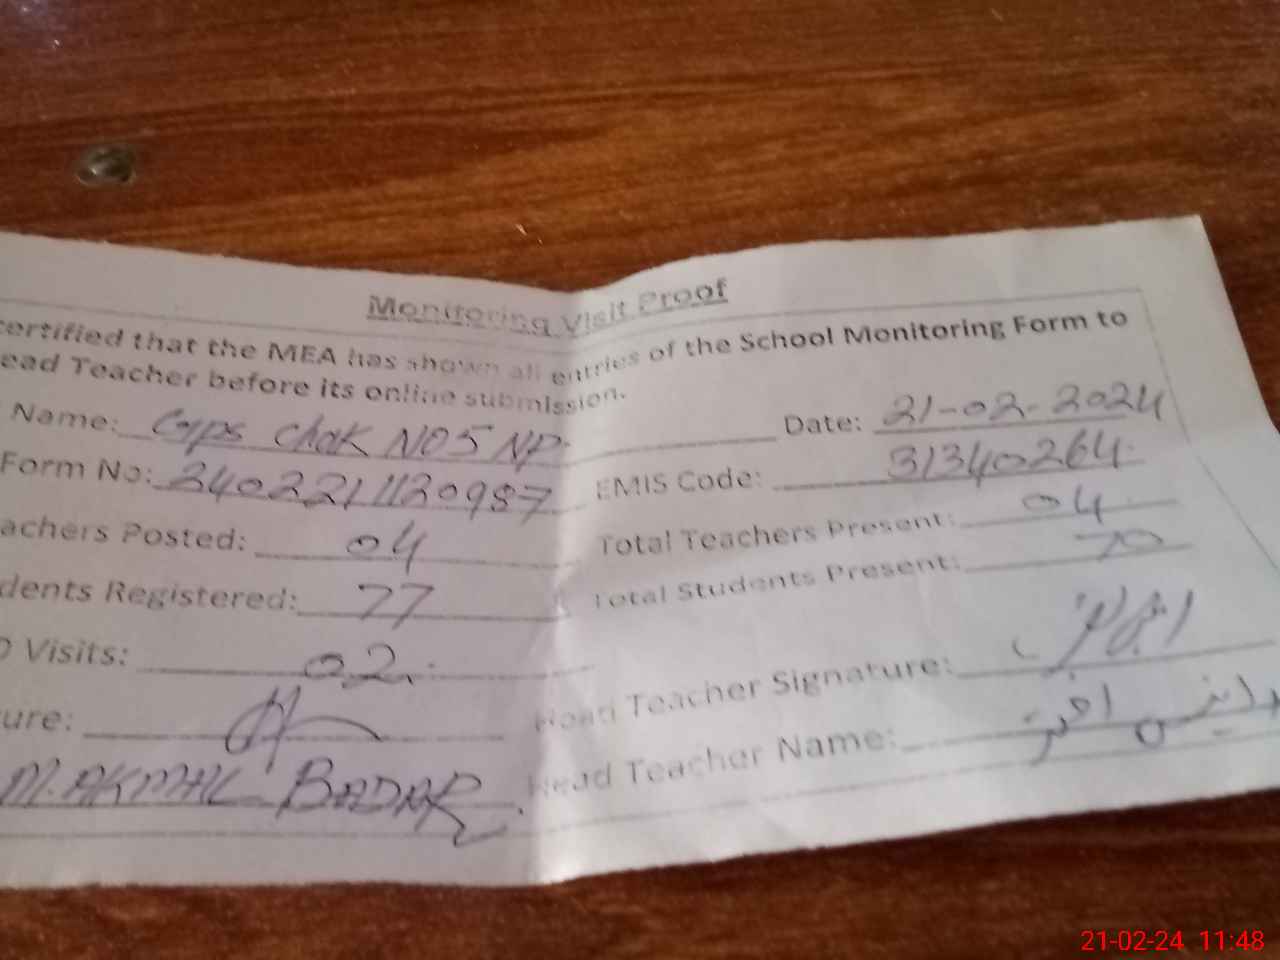 Monitoring Visit Proof
certified that the MEA has shown all entries of the School Monitoring Form to
ead Teacher before its online submission.
Name: Gps Chak NO5 NP. Date: 21-02-2024
Form No: 2402211120987 EMIS Code: 31340264
achers Posted: 04 Total Teachers Present: 04
dents Registered: 77 Total Students Present: 70
Visits: 02. Head Teacher Signature:
ure: Head Teacher Name:
M. AKMAL BADAR
21-02-24 11:48